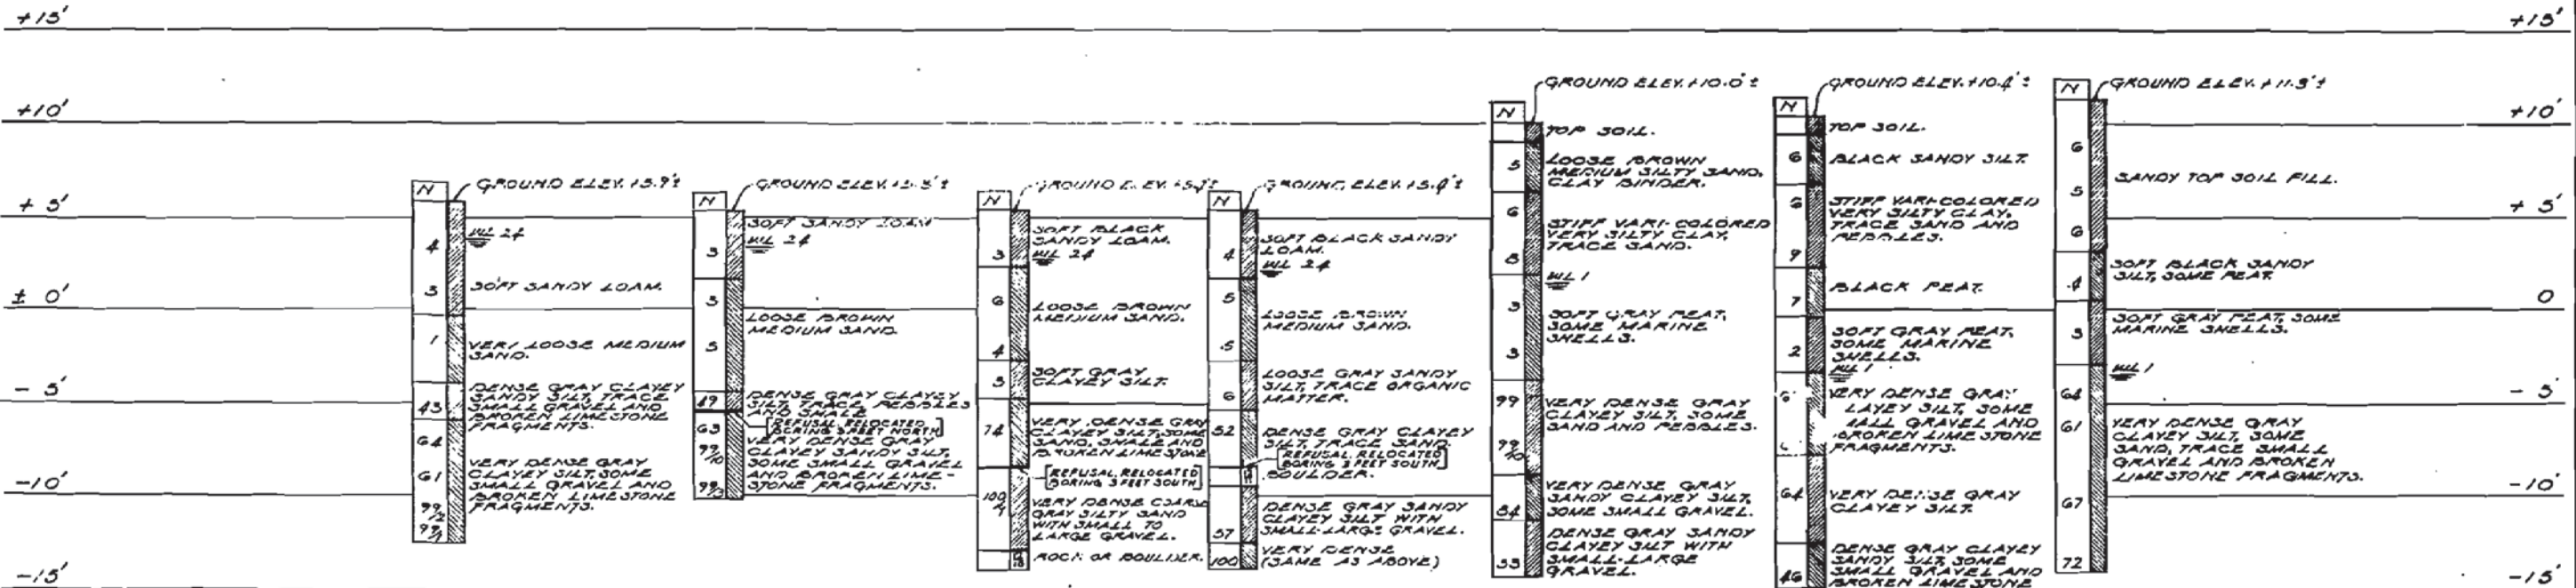 +15'
+15'
+10'
+10'
+5'
+5'
± 0'
0
-5'
-5'
-10'
-10'
-15'
-15'
N
GROUND ELEV. +5.9'±
4
WL 24
3
SOFT SANDY LOAM.
1
VERY LOOSE MEDIUM
SAND.
43
DENSE GRAY CLAYEY
SANDY SILT, TRACE
SMALL GRAVEL AND
BROKEN LIMESTONE
FRAGMENTS.
64
61
VERY DENSE GRAY
CLAYEY SILT, SOME
SMALL GRAVEL AND
BROKEN LIMESTONE
FRAGMENTS.
99/2
99/1
N
GROUND ELEV.
SOFT SANDY LOAM
WL 24
3
3
LOOSE BROWN
MEDIUM SAND.
5
49
DENSE GRAY CLAYEY
SILT, TRACE PEBBLES
AND SHALE
REFUSAL, RELOCATED
BORING 3 FEET NORTH
63
99/10
99/3
VERY DENSE GRAY
CLAYEY SANDY SILT,
SOME SMALL GRAVEL
AND BROKEN LIME-
STONE FRAGMENTS.
N
GROUND ELEV.
SOFT BLACK
SANDY LOAM.
3
WL 24
6
LOOSE BROWN
MEDIUM SAND.
4
3
SOFT GRAY
CLAYEY SILT.
74
VERY DENSE GRAY
CLAYEY SILT, SOME
SAND, SHALE AND
BROKEN LIMESTONE
REFUSAL, RELOCATED
BORING 3 FEET SOUTH
100
VERY DENSE COARSE
GRAY SILTY SAND
WITH SMALL TO
LARGE GRAVEL.
ROCK OR BOULDER.
N
GROUND ELEV. +5.4'±
4
SOFT BLACK SANDY
LOAM.
WL 24
5
LOOSE BROWN
MEDIUM SAND.
5
6
LOOSE GRAY SANDY
SILT, TRACE ORGANIC
MATTER.
52
DENSE GRAY CLAYEY
SILT, TRACE SAND.
REFUSAL, RELOCATED
BORING 3 FEET SOUTH
BOULDER.
DENSE GRAY SANDY
CLAYEY SILT WITH
SMALL-LARGE GRAVEL.
57
100
VERY DENSE
(SAME AS ABOVE)
N
GROUND ELEV. +10.0'±
TOP SOIL.
5
LOOSE BROWN
MEDIUM SILTY SAND,
CLAY BINDER.
6
STIFF VARI-COLORED
VERY SILTY CLAY,
TRACE SAND.
8
WL 1
3
SOFT GRAY PEAT,
SOME MARINE
SHELLS.
3
99
VERY DENSE GRAY
CLAYEY SILT, SOME
SAND AND PEBBLES.
99/10
VERY DENSE GRAY
SANDY CLAYEY SILT,
SOME SMALL GRAVEL.
54
DENSE GRAY SANDY
CLAYEY SILT WITH
SMALL-LARGE
GRAVEL.
53
N
GROUND ELEV. +10.4'±
TOP SOIL.
6
BLACK SANDY SILT.
6
STIFF VARI-COLORED
VERY SILTY CLAY,
TRACE SAND AND
PEBBLES.
9
7
BLACK PEAT.
2
SOFT GRAY PEAT,
SOME MARINE
SHELLS.
WL 1
VERY DENSE GRAY
LAYEY SILT, SOME
ALL GRAVEL AND
BROKEN LIME STONE
FRAGMENTS.
64
VERY DENSE GRAY
CLAYEY SILT.
46
DENSE GRAY CLAYEY
SANDY SILT, SOME
SMALL GRAVEL AND
BROKEN LIMESTONE
N
GROUND ELEV. +11.3'±
6
5
SANDY TOP SOIL FILL.
6
4
SOFT BLACK SANDY
SILT, SOME PEAT
3
SOFT GRAY PEAT, SOME
MARINE SHELLS.
WL 1
64
61
VERY DENSE GRAY
CLAYEY SILT, SOME
SAND, TRACE SMALL
GRAVEL AND BROKEN
LIMESTONE FRAGMENTS.
67
72